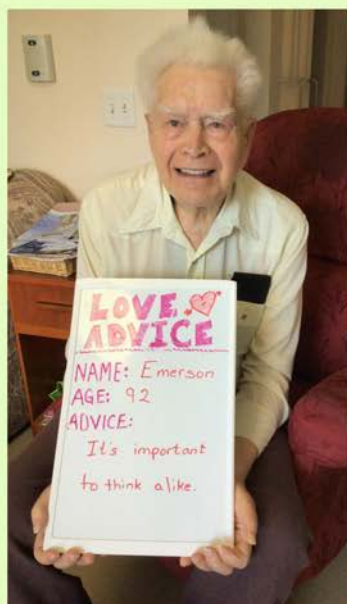 LOVE
ADVICE
NAME: Emerson
AGE: 92
ADVICE:
It's important
to think alike.